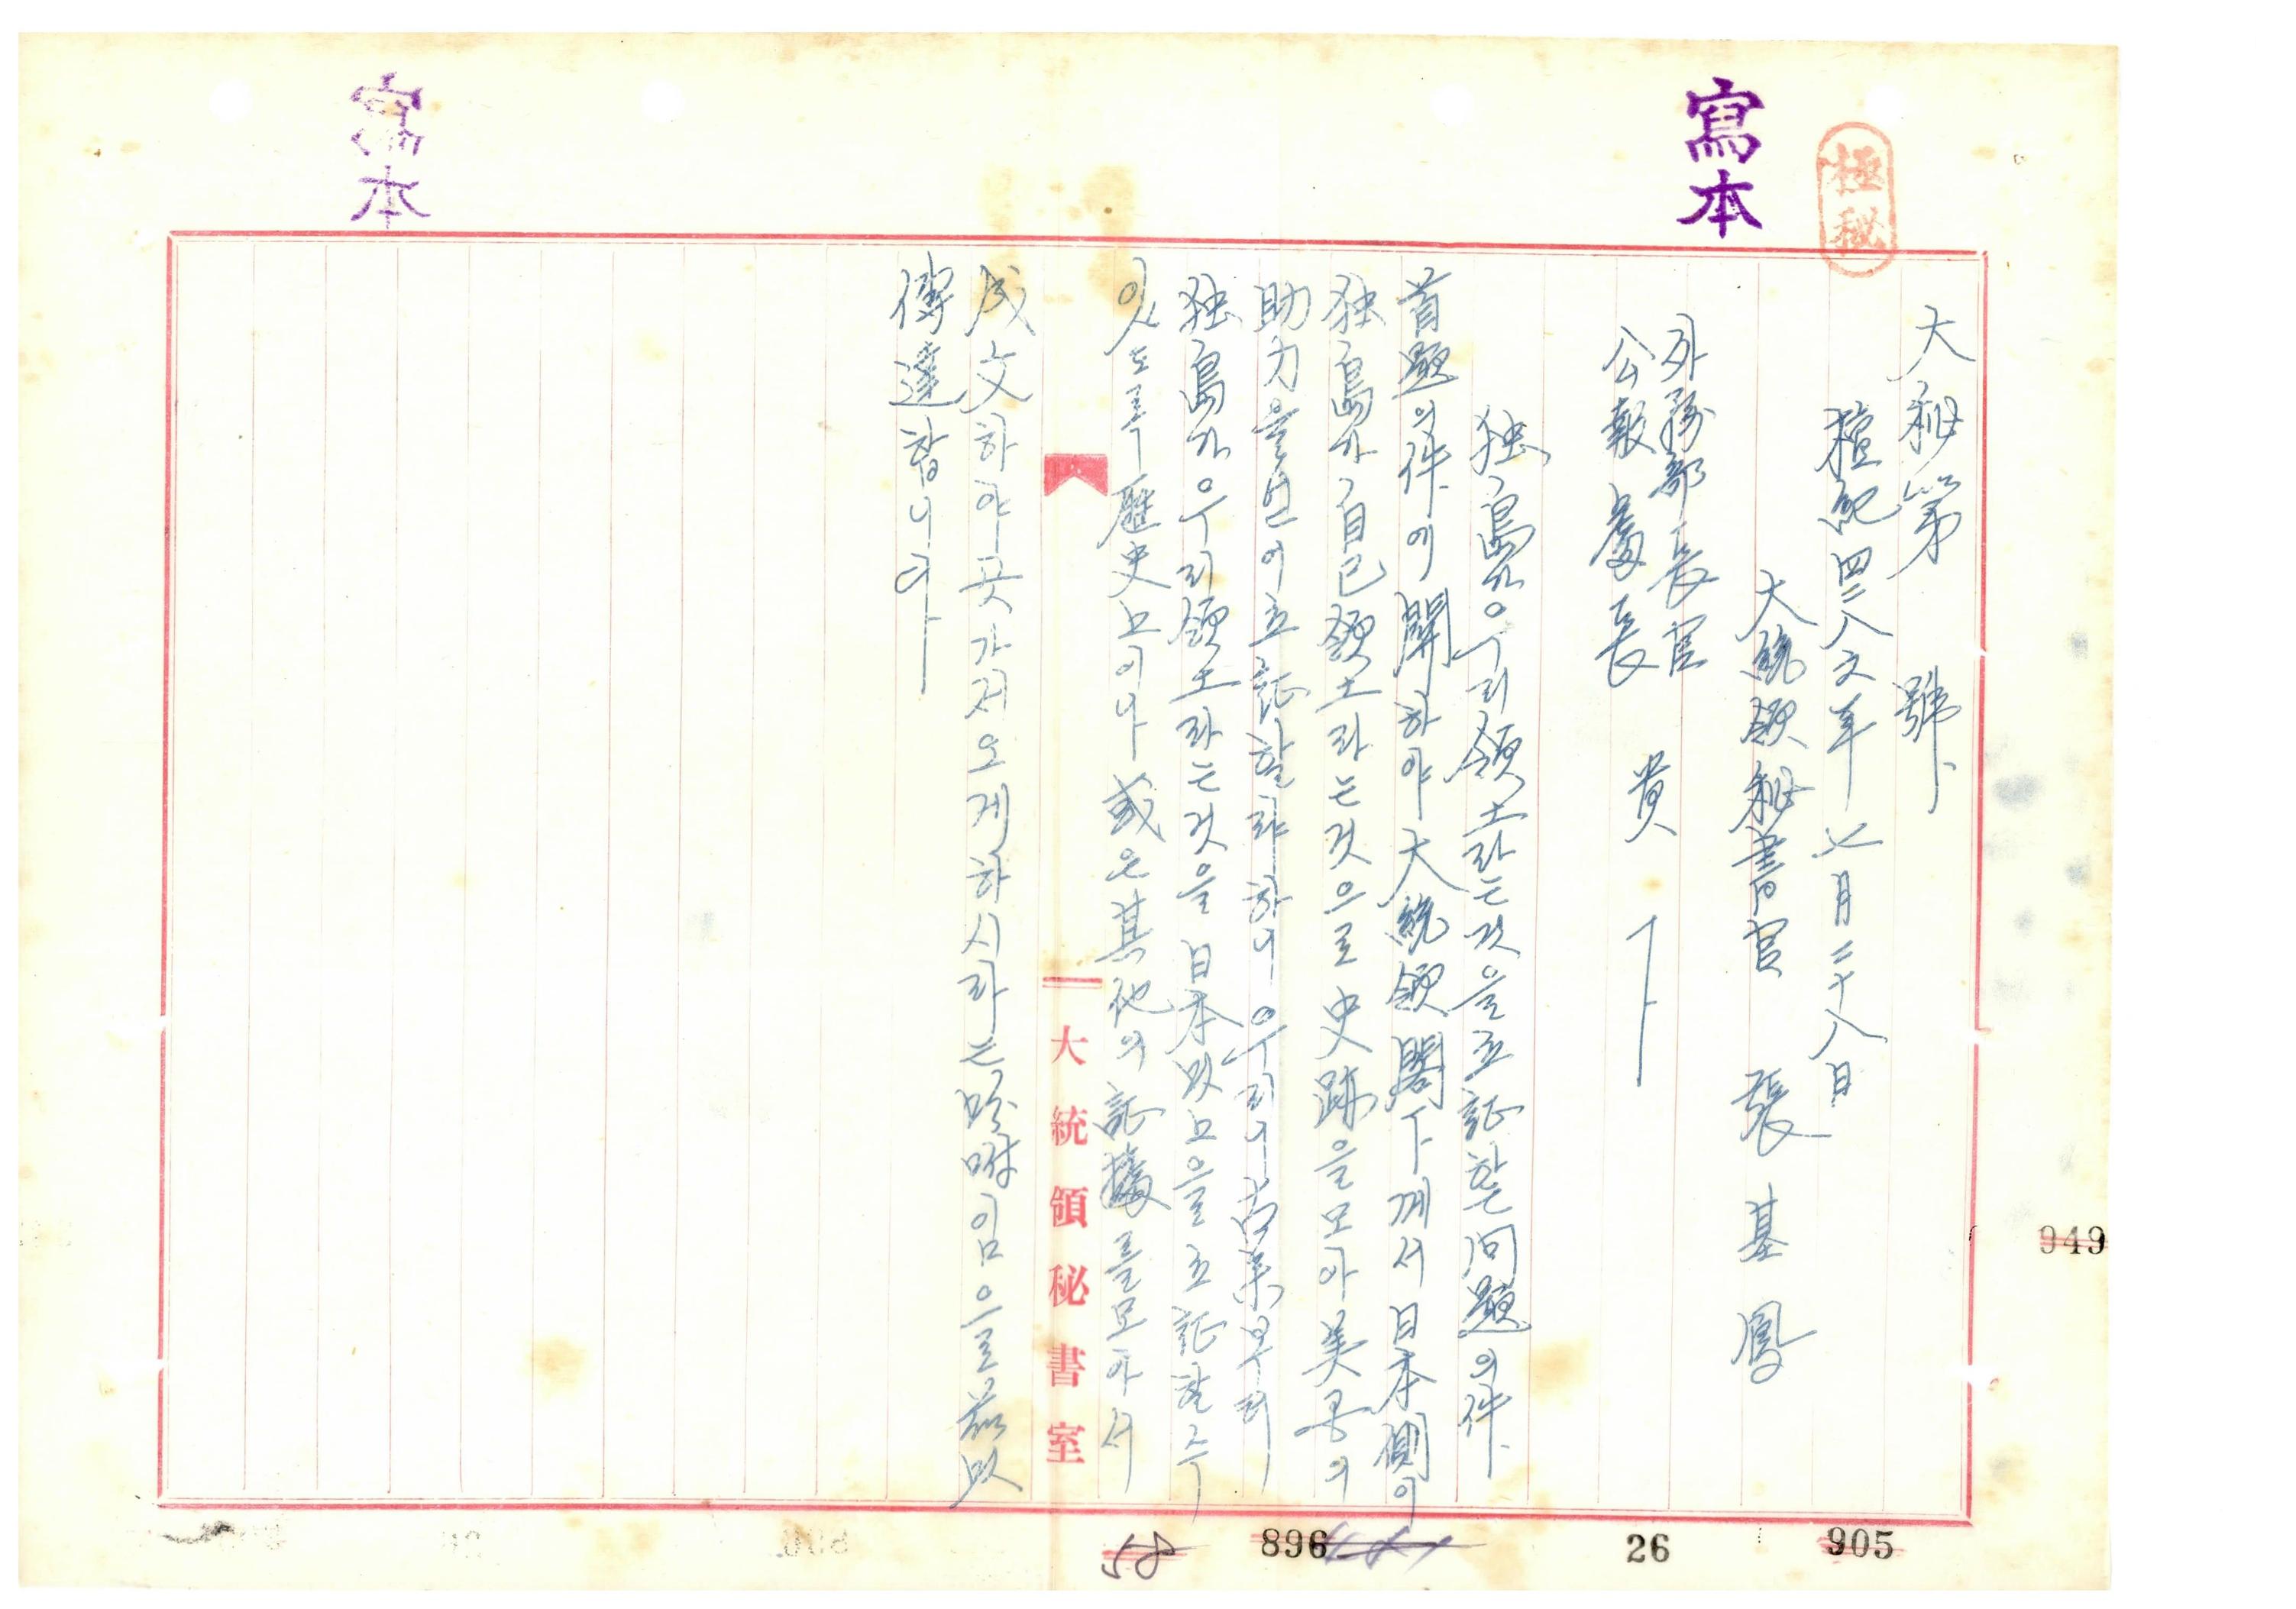 極秘
寫本
寫本
大秘第 號
檀紀四二八六年七月二十八日
大統領秘書官 張基鳳
外務部長官
公報處長 貴下
独島가우리領土라는것을立証하는問題의件
首題의件에關하야大統領閣下께서日本側이
独島가自己領土라는것으로史跡을모아美国의
助力을얻어立証할랴하니우리니
独島가우리領土라는것을日本以上을立証할수
있도록歷史上이나或은其他의証據를모아서
成文하야곳가저오게하시라는吩咐임으로玆以
傳達합니다
大統領秘書室
949
58
896
26
905